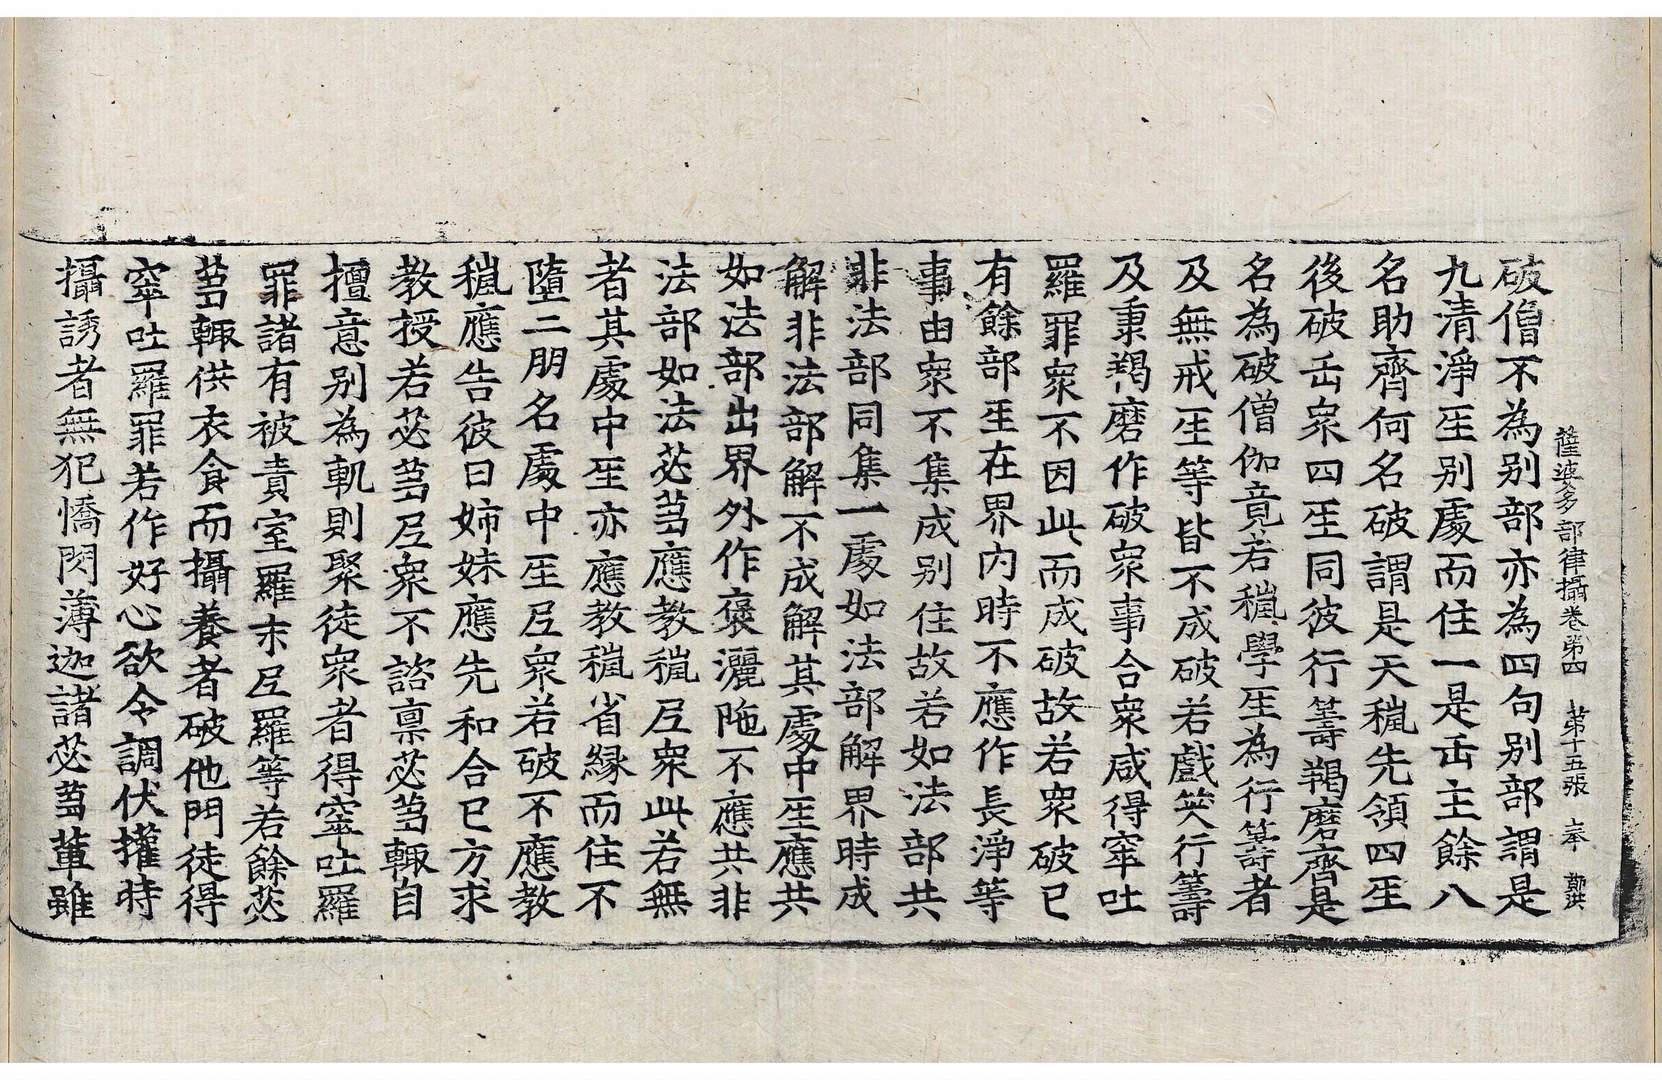 薩婆多部律攝卷第四　第十五張　奉
破僧不為别部亦為四句别部謂是
九清淨苾别處而住一是𠫤主餘八
名助齊何名破謂是天穐先領四苾
後破𠫤衆四苾同彼行籌羯磨齊是
名為破僧伽竟若穐學苾為行籌者
及無戒苾等皆不成破若戲笑行籌
及秉羯磨作破衆事合衆咸得窣吐
羅罪衆不因此而成破故若衆破已
有餘部苾在界内時不應作長淨等
事由衆不集成别住故若如法部共
非法部同集一處如法部解界時成
解非法部解不成解其處中苾應共
如法部出界外作褒灑陁不應共非
法部如法苾蒭應教穐𡰱衆此若無
者其處中苾亦應教穐省緣而住不
墮二朋名處中苾𡰱衆若破不應教
穐應告彼曰姊妹應先和合已方求
教授若苾蒭𡰱衆不諮稟苾蒭輙自
擅意别為軌則聚徒衆者得窣吐羅
罪諸有被責室羅末𡰱羅等若餘苾
蒭輙供衣食而攝養者破他門徒得
窣吐羅罪若作好心欲令調伏攉時
攝誘者無犯憍閃薄迦諸苾蒭輩雖